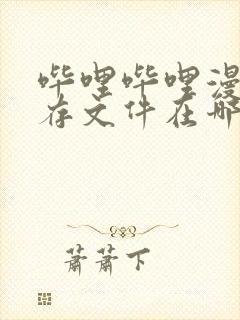 哔哩哔哩漫
存文件在哪
萧萧下